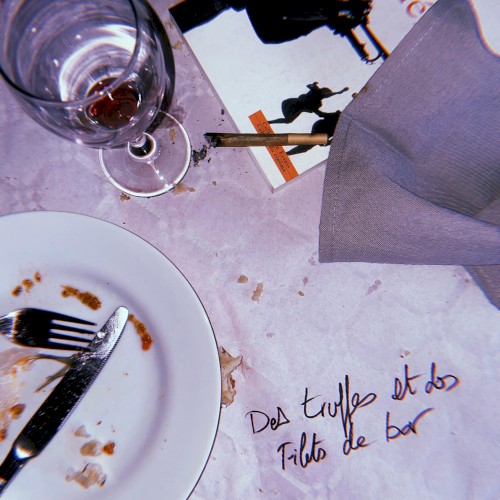 Des truffes et des
Filets de bar